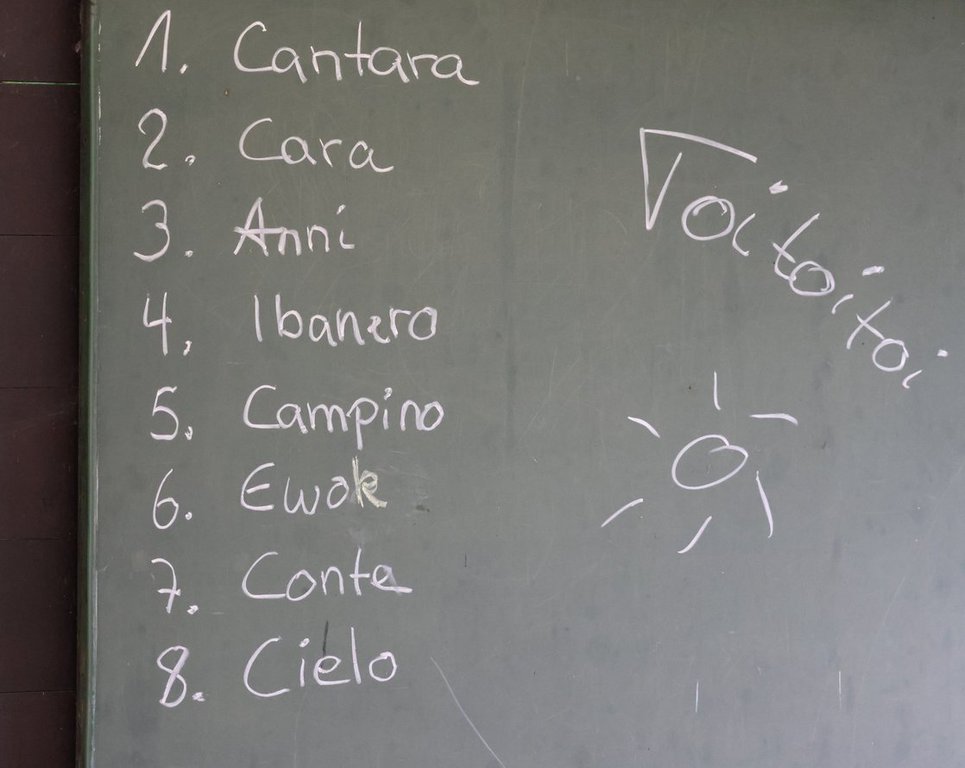 1. Cantara
2. Cara
3. Anni
4. Ibanero
5. Campino
6. Ewok
7. Conte
8. Cielo
Toitoitoi